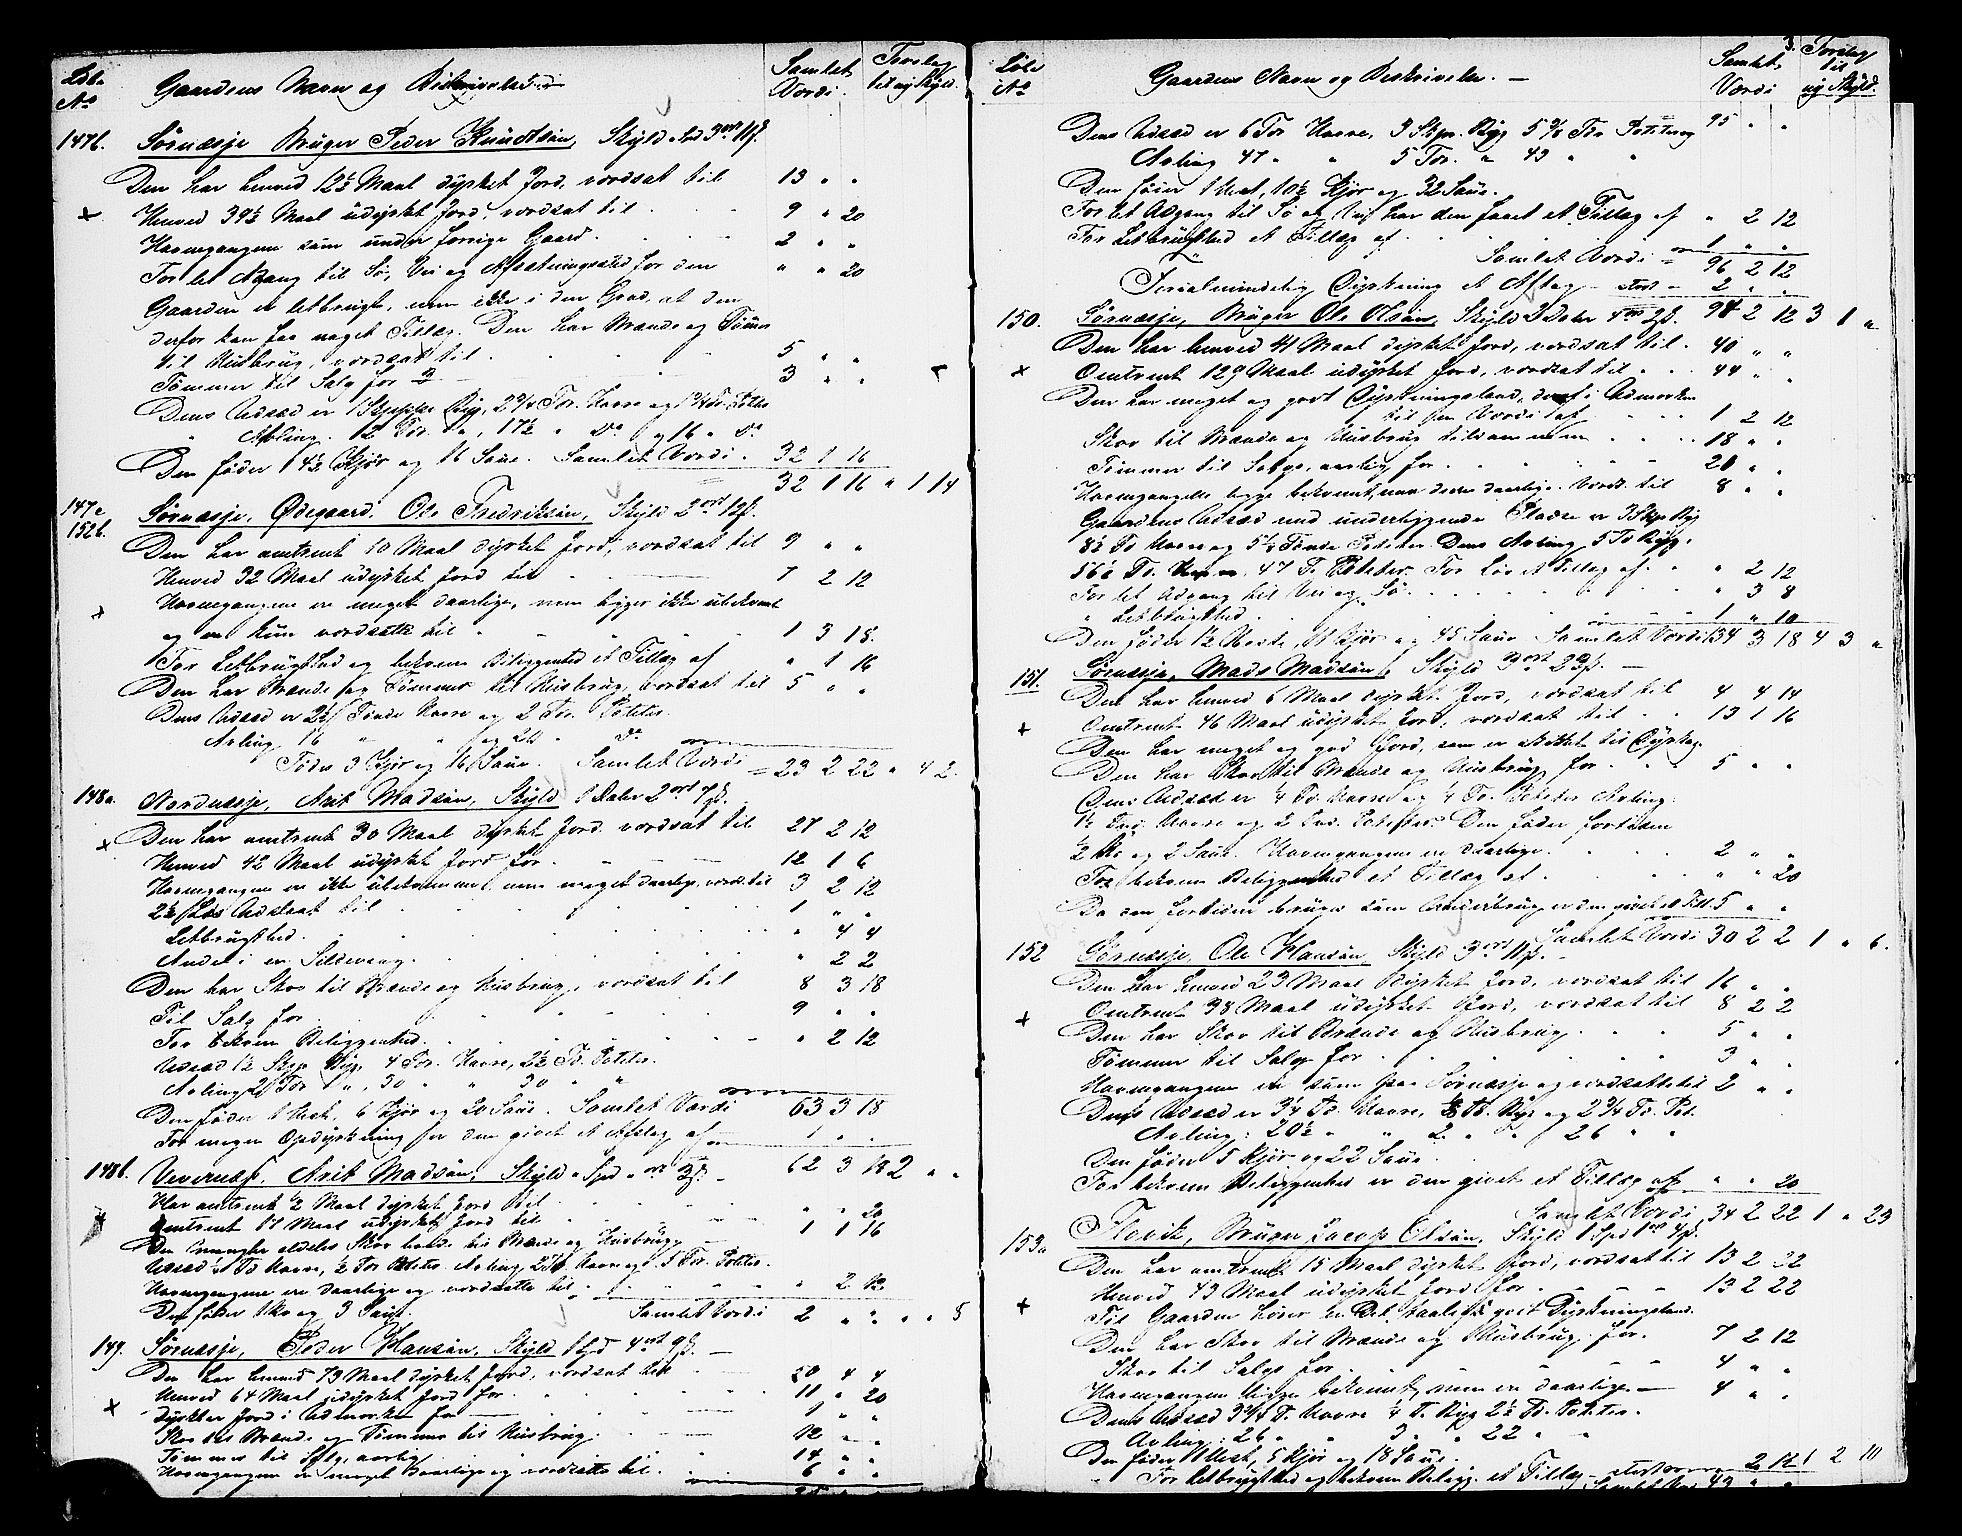 Løbe No Gaardens Navn og Beskrivelse Samlet Værdi. Forslag til ny Skyld.
147b. Sørnæsje Bruger Peder Knudtsøn, Skyld 3 ort
Den har henved 12½ Maal dyrket Jord, værdsat til 13 " "
Henved 39½ Maal udyrket Jord, værdsat til 9 " 20
Havnegangene som under forrige Gaard. 2 " "
For let Adgang til Sø, Vei og Afsætningssted for den " " 20
Gaarden er letbrugt, men ikke i den Grad, at den
derfor kan faa noget Tillæg. Den har Brænde og Tømmer
til Husbrug, værdsat til 5 " "
Tømmer til Salg for 3 " "
Dens Udsæd er 1 Skjeppe Byg, 2¾ Tør. Havre og Poteter
" Avling 12 Tdr. 17½ " Do og 16 " Do
Den føder 4½ Kjør og 16 Saue. Samlet Værdi. 32 1 16
32 1 16 " 1 14
147c 152b. Sørnæsje, Ødegaard. Ole Fredriksøn, Skyld 2 ort 12
Den har omtrent 10 Maal dyrket Jord, værdsat til 9 " "
Henved 32 Maal udyrket Jord til 7 2 12
Havnegangene er meget daarlige, men ligger ikke ubekvemt
og er kun værdsatte til 1 3 18.
For Letbrugthed og bekvem Beliggenhed et Tillæg af " 1 16
Den har Brænde og Tømmer til Husbrug, værdsat til 5 " "
Dens Udsæd er 2½ Tønde Havre og 2 Tdr. Poteter.
Avling 16 " " og 26 " Do
Føder 3 Kjør og 16 Saue. Samlet Værdi 23 2 22 " 4 2.
148a. Nordnæsje, Arik Madsøn, Skyld 1 Daler 2 ort 7
Den har omtrent 30 Maal dyrket Jord. værdsat til 27 2 12
Henved 42 Maal udyrket Jord for. 12 1 6
Havnegangene er ikke ubekvemme, men meget daarlige, værds. til 3 2 12
2½ Løs Udslaat til 1 " "
Letbrugthed. " 4 4
Andel i en Sildevaag. " 2 2
Den har Skov til Brænde og Husbrug, værdsat til 8 3 18
Til Salg for 9 " "
For bekvem Beliggenhed. " 2 12
Udsæd 1½ Skjp. Byg, 4 Tdr. Havre, 2½ Td. Poteter.
Avling 2 Tdr " , 30 " " 30 " "
Den føder 1 Hest, 6 Kjør og 20 Saue. Samlet Værdi 63 3 18
For megen Opdyrkning for den givet et Afslag af 1 " "
148b. Arik Madsøn, Skyld " Spd " ort 3 62 3 18 2 " "
Har omtrent ½ Maal dyrket Jord til " " 20
Omtrent 17 Maal udyrket Jord til 1 1 16
Den mangler aldeles Skov baade til Brænde og Husbrug.
Udsæd Td Havre, ½ Tdr Poteter Avling Havre og 5 Tdr. Poteter.
Havnegangene ere daarlige og værdsatte til " 2 12
Den føder 1 Ko og 3 Saue. Samlet Værdi 2 " " " " 8
149. Sørnæsje, Peder Hansøn, Skyld 1 Spd 4 ort 9
Den har henved 73 Maal dyrket Jord, værdsat til 50 4 4
Henved 64 Maal udyrket Jord for 11 " 20
Dyrkbar Jord i Udmarken for 1 " "
Skov til Brænde og Tømmer til Husbrug. 12 " "
Tømmer til Salg, aarlig 14 " "
Havnegangene er meget daarlige og værdsatte til 6 " "
3.
Løbe No Gaardens Navn og Beskrivelse. Samlet Værdi Forslag til ny Skyld.
Dens Udsæd er 6 Tdr Havre, 3 Skpr. Byg 5⅜ Tdr Poteter 95 " "
Avling 47 " " 5 Tdr. " 43 " "
Den føder 1 Hest, 10½ Kjør og 32 Saue.
For let Adgang til Sø og Vei har den faaet et Tillæg af " 2 12
For Letbrugthed et Tillæg af 1 " "
Samlet Værdi 96 2 12
Opdyrkning et Afslag stort 2 " "
150. Sørnæsje, Bruger Ole Olsøn, Skyld 2 Daler 4 ort 2 94 2 12 3 1 "
Den har henved 41 Maal dyrket Jord, værdsat til 40 " "
Omtrent 129 Maal udyrket Jord, værdsat til 44 " "
Den har meget og godt Dyrkningsland, deraf i Udmarken
til en Værdi af 1 2 12
Skov til Brænde og Husbrug tilsammen 18 " "
Tømmer til Salgs, aarlig for 20 " "
Havnegangene ligge bekvemt, men ere daarlige. Værds. til 8 " "
Gaardens Udsæd med underliggende Pladse er 3 Skp Byg
8½ Td Havre og 5⅛ Tønde Poteter. Dens Avling 5 Td Byg.
56½ Td. Havre. 47 T. Poteter. For Løv et Tillæg af " 2 12
For let Adgang til Vei og Sø. " 3 8
" Letbrugthed. 1 " 10
Den føder 1½ Heste, 11 Kjør og 45 Saue Samlet Værdi 134 3 18 4 3 "
151. Sørnæsje, Mads Madsøn, Skyld 3 ort 23
Den har henved 6 Maal dyrket Jord, værdsat til 4 4 14
Omtrent 46 Maal udyrket Jord, værdsat til 13 1 16
Den har meget og god Jord, som er skikket til Dyrkning
Den har Skov til Brænde og Husbrug for 5 " "
Dens Udsæd er ¼ Td. Havre og ¼ Td. Poteter Avling:
1½ Tdr. Havre og 2 Tdr. Poteter. Den føder fortiden
½ Ko og 2 Saue. Havnegangene ere daarlige. 2 " "
For bekvem Beliggenhed et Tillæg af " " 20
Da den fortiden bruges som Underbrug er den givet et Till. 5 " "
Samlet Værdi 30 2 2 1 " 6.
152 Sørnæsje, Ole Hansøn, Skyld 3 ort 11
Den har henved 23 Maal dyrket Jord, værdsat til 16 " "
Omtrent 38 Maal udyrket Jord, værdsat til 8 2 2
Den har Skov til Brænde og Husbrug 5 " "
Tømmer til Salg for 3 " "
Havnegangene er som paa Sørnæsje og værdsatte til 2 " "
Dens Udsæd er 3¼ Td. Havre, ⅛ Td. Byg og 2¾ Td. Pot.
Avling: 20½ " " 2 " " 26 " "
Den føder 5 Kjør og 22 Saue.
For bekvem Beliggenhed er den givet et Tillæg af " " 20
Samlet Værdi 34 2 22 1 " 23
153a Flovik, Bruger Jacob Olsøn, Skyld 1 Spd 1 ort 4
Den har omtrent 15 Maal dyrket Jord, værdsat til 13 2 22
Henved 43 Maal udyrket Jord for 13 2 22
Til Gaarden hører en Del godt Dyrkningsland.
Den har Skov til Brænde og Husbrug for. 7 2 12
Skov til Salgs for 4 " "
Havnegangene ligge bekvemt, men er daarlige. 4 " "
Dens Udsæd 3¾ T. Havre ¼ T. Byg 2½ Td. Poteter.
Avling: 26 " " 3 " " 22 " "
Den føder 1 Hest, 5 Kjør og 18 Saue.
For Letbrugthed og bekvem Beligg. et Tillæg stort 2 12 1 2 10
Samlet Værdi 43 " "